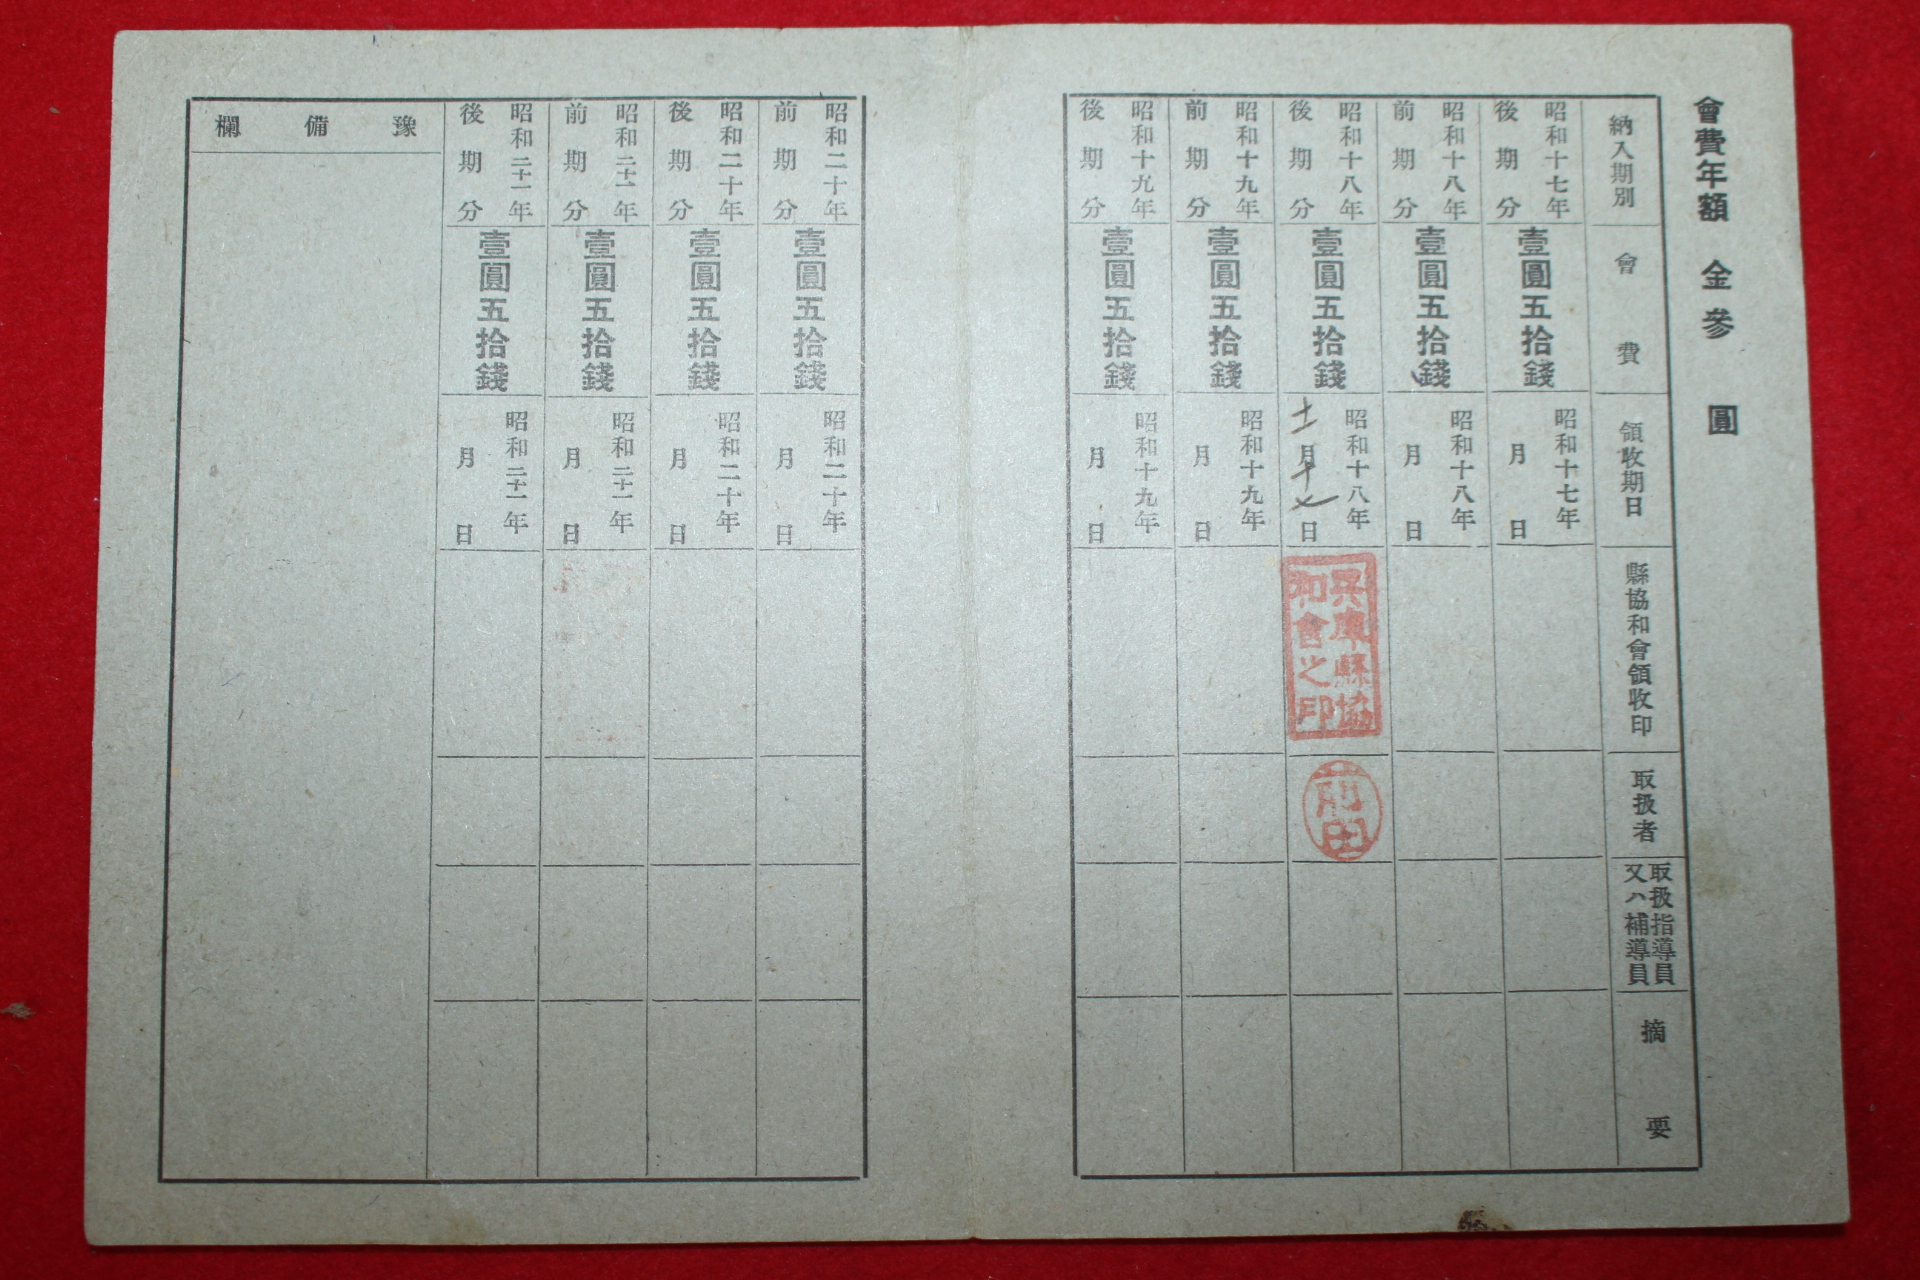 會費年額 金參圓
納入期別
會費
領收期日
縣協和會領收印
取扱者
取扱指導員
又ハ補導員
摘要
昭和十七年
後期分
壹圓五拾錢
昭和十七年
月 日
昭和十八年
前期分
壹圓五拾錢
昭和十八年
月 日
昭和十八年
後期分
壹圓五拾錢
昭和十八年
十一月十七日
兵庫縣協
和會之印
前田
昭和十九年
前期分
壹圓五拾錢
昭和十九年
月 日
昭和十九年
後期分
壹圓五拾錢
昭和十九年
月 日
昭和二十年
前期分
壹圓五拾錢
昭和二十年
月 日
昭和二十年
後期分
壹圓五拾錢
昭和二十年
月 日
昭和二十一年
前期分
壹圓五拾錢
昭和二十一年
月 日
昭和二十一年
後期分
壹圓五拾錢
昭和二十一年
月 日
豫備欄